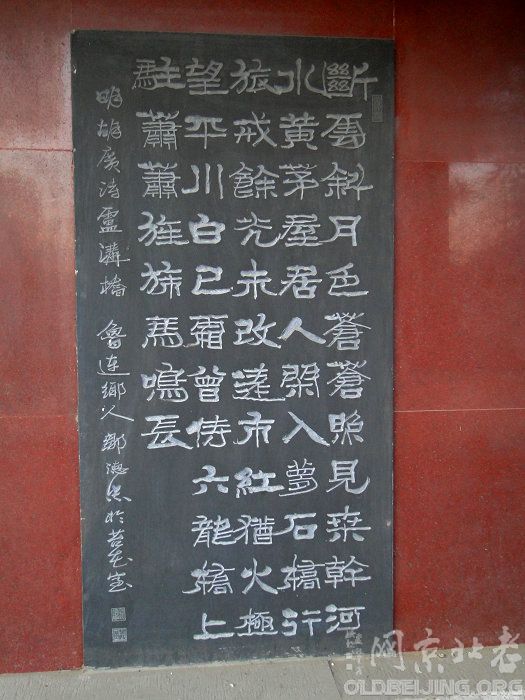 斷雲斜月色蒼蒼照見桑幹河
水黃茅屋居人閑入夢石橋行
旅戒餘光未改遠市紅猶火極
望平川白已霜曾侍六龍橋上
駐蕭蕭旌旆馬鳴長
明胡廣詩盧溝橋 魯連鄉人鄭
老北京网
OLDBEIJING.ORG